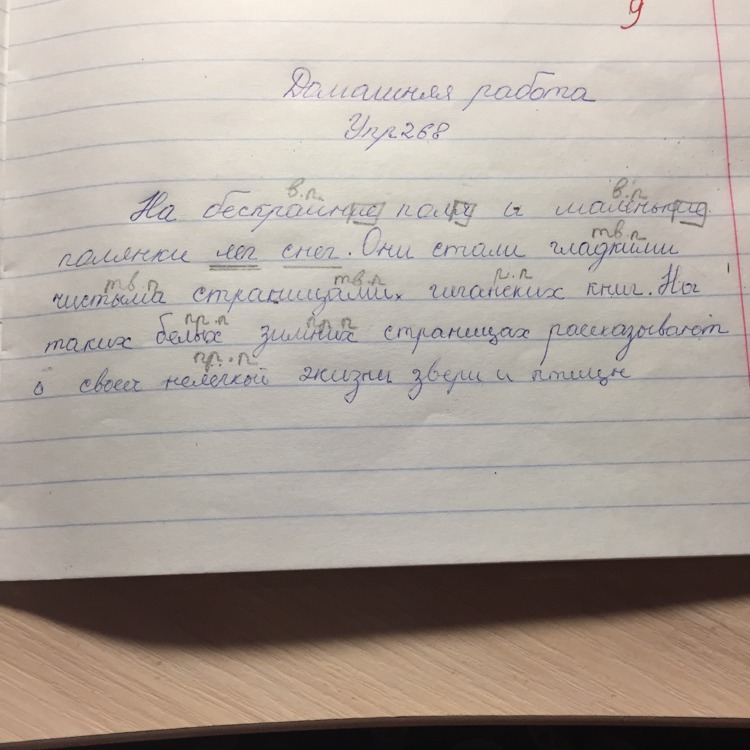 9
Домашняя работа
Упр 268
в.п. в.п
На бескрайние поля и маленькие
тв.п
полянки лег снег. Они стали гладкими
тв.п тв.п р.п
чистыми страницами гиганских книг. На
пр.п пр.п
таких белых зимних страницах рассказывают
пр.п
о своей нелегкой жизни звери и птицы